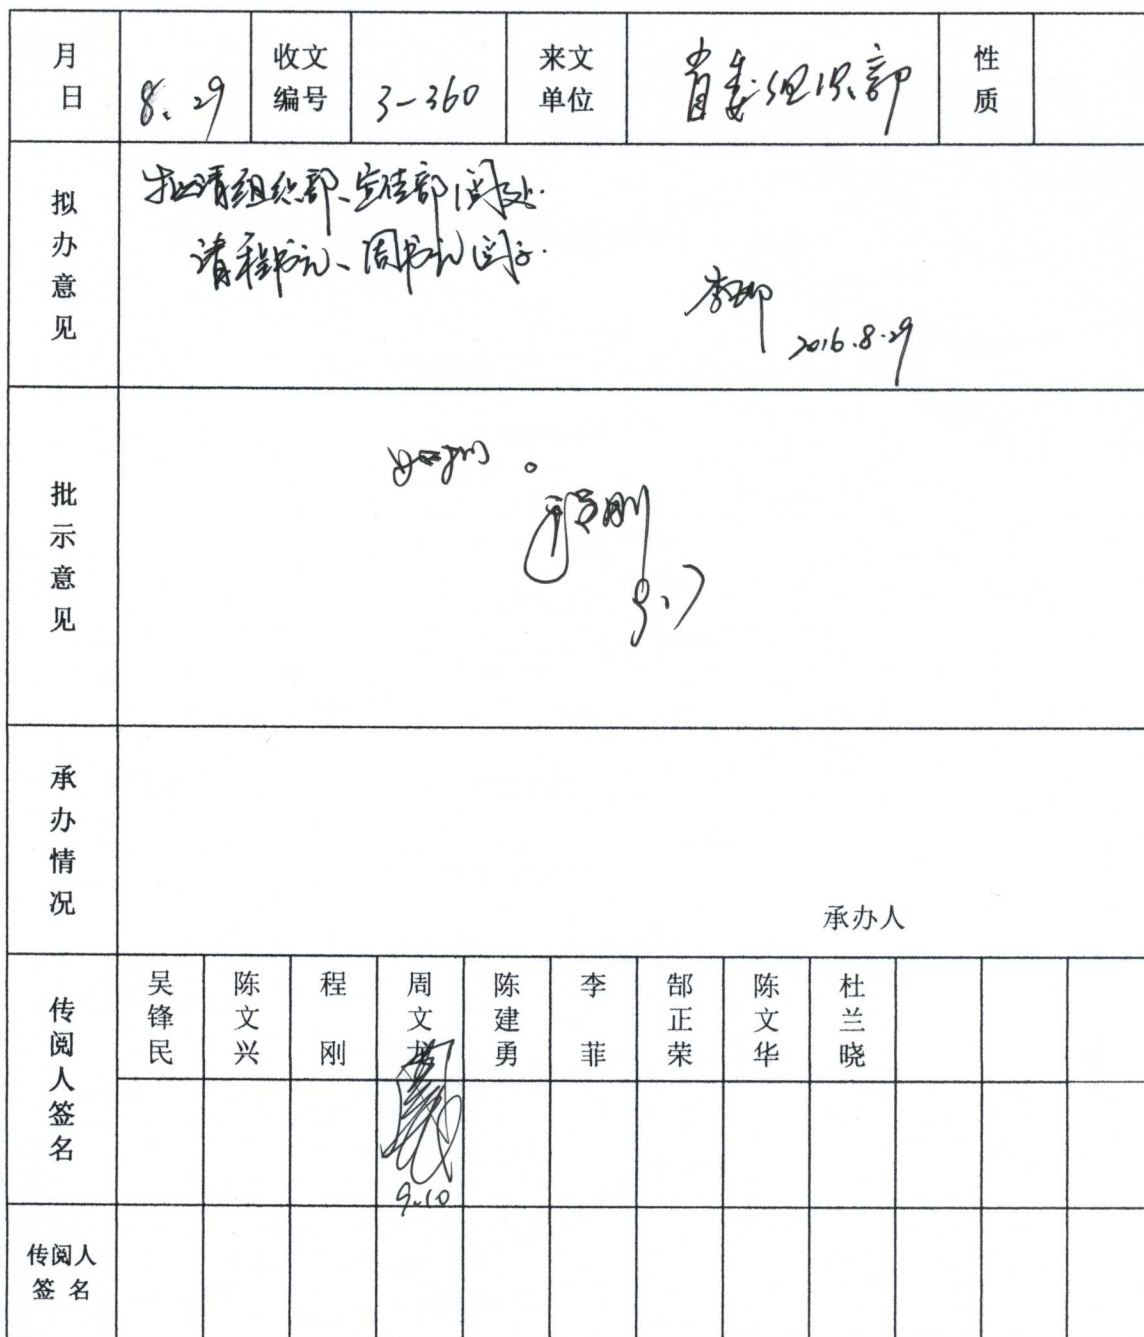 月日 8.29 收文编号 3-360 来文单位 省委组织部 性质
拟办意见
拟请组织部、宣传部阅处.
请程书记、周书记阅示.
2016.8.29
批示意见
程刚
9.7
承办情况
承办人
传阅人签名 吴锋民 陈文兴 程刚 周文 陈建勇 李菲 郜正荣 陈文华 杜兰晓
9.10
传阅人签名